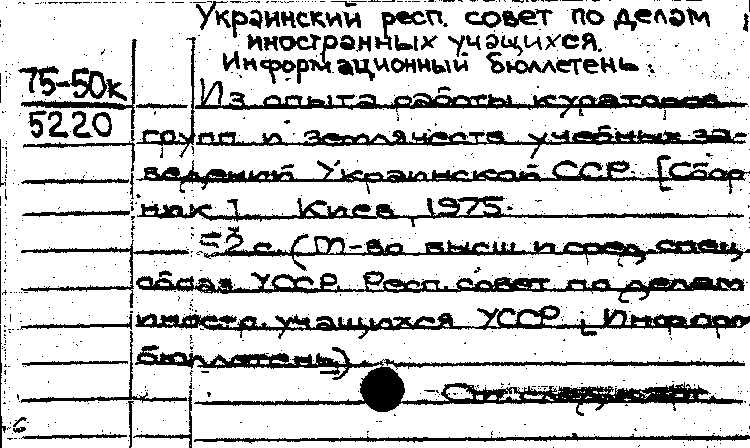 Украинский респ. совет по делам
иностранных учащихся.
Информационный бюллетень.
75-50к
Из опыта работы кураторов
5220
групп и землячеств учебных за-
ведений Украинской ССР. [Сбор
ник]. Киев, 1975.
2 с. (М-во высш и сред. спец.
образ УССР. Респ. совет по делам
иностр. учащихся УССР. Информ
бюллетень)
См. след. карт.
6